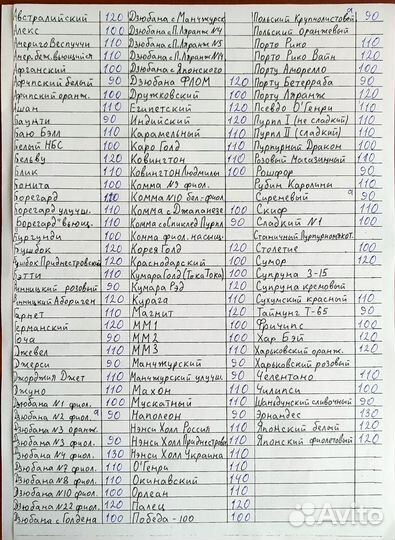 Австралийский 120
Алекс 100
Америго Веспуччи 110
Амер.беж.вьющийся 110
Афганский 100
Африпский белый 90
Африпск оранж. 100
Ашан 110
Баунти 90
Баю Бэлл 110
Белый НБС 100
Бельву 120
Блик 110
Бонита 100
Борегард 120
Борегард улучш. 110
"Борегард" вьющ. 110
Бургунди 100
Бушбок 120
Бушбок Приднестровский 120
Бэтти 110
Винницкий розовый 90
Винницкий Абориген 120
Гарнет 110
Германский 120
Гоча 90
Джевел 110
Джерси 90
Джорджия Джет 110
Джуно 110
Дзюбана №1 фиол. 100
Дзюбана №2 фиол. 90
Дзюбана №3 оранж.
Дзюбана №3 фиол. 90
Дзюбана №4 фиол. 130
Дзюбана №7 фиол. 110
Дзюбана №8 фиол. 110
Дзюбана №10 фиол. 100
Дзюбана №22 фиол. 120
Дзюбана с Голдена 100
Дзюбана с Манчжурск
Дзюбана с П.Ляранж №4
Дзюбана с П.Ляранж №5
Дзюбана с П.Ляранж №14
Дзюбана с Японского
Дзюбана ФЛОМ 120
Дружковский 100
Египетский 120
Индийский 120
Карамельный 110
Каро Голд 110
Ковингтон 110
Ковингтон Людмилы 100
Комма №3 фиол.
Комма №10 бел-фиол
Комма с Джапанезе 100
Комма с Спиклед Пурпл 90
Комма фиол. насыщ.
Корея Голд 120
Краснодарский 100
Кумара Голд (Тока Тока) 100
Кумара Рэд 120
Курага 110
Магнит 120
ММ1 100
ММ2 100
ММ3 110
Манчжурский 90
Манчжурский улучш 90
Махон 110
Мускатный 110
Наполеон 90
Нэнси Холл Россия 110
Нэнси Холл Приднестровье 110
Нэнси Холл Украина 110
О'Генри 110
Окинавский 140
Орлеан 110
Палец 120
Победа-100 100
Польский Крупнолистовой 90
Польский оранжевый
Порто Рико 110
Порто Рико Вайн 120
Порту Аморелло 100
Порту Бетерраба 90
Порту Ляранж 120
Псевдо О'Генри 110
Пурпл I (не сладкий) 110
Пурпл II (сладкий) 110
Пурпурный Дракон 100
Розовый Насыщенный 110
Рошфор 90
Рубин Каролины 110
Сиреневый 90
Скиф 110
Сладкий №1 100
Станичный Пурпурномякот.
Столетие 100
Сумор 120
Супруна 3-15
Супруна кремовый
Сухумский красный 110
Тайнунг Т-65 90
Фричипс 100
Хар Бэй 120
Харьковский оранж. 120
Харьковский розовый
Челентано 110
Чилипси 100
Шалыдунский сливочный 90
Эрнандес 130
Японский белый 120
Японский фиолетовый 120
Avito